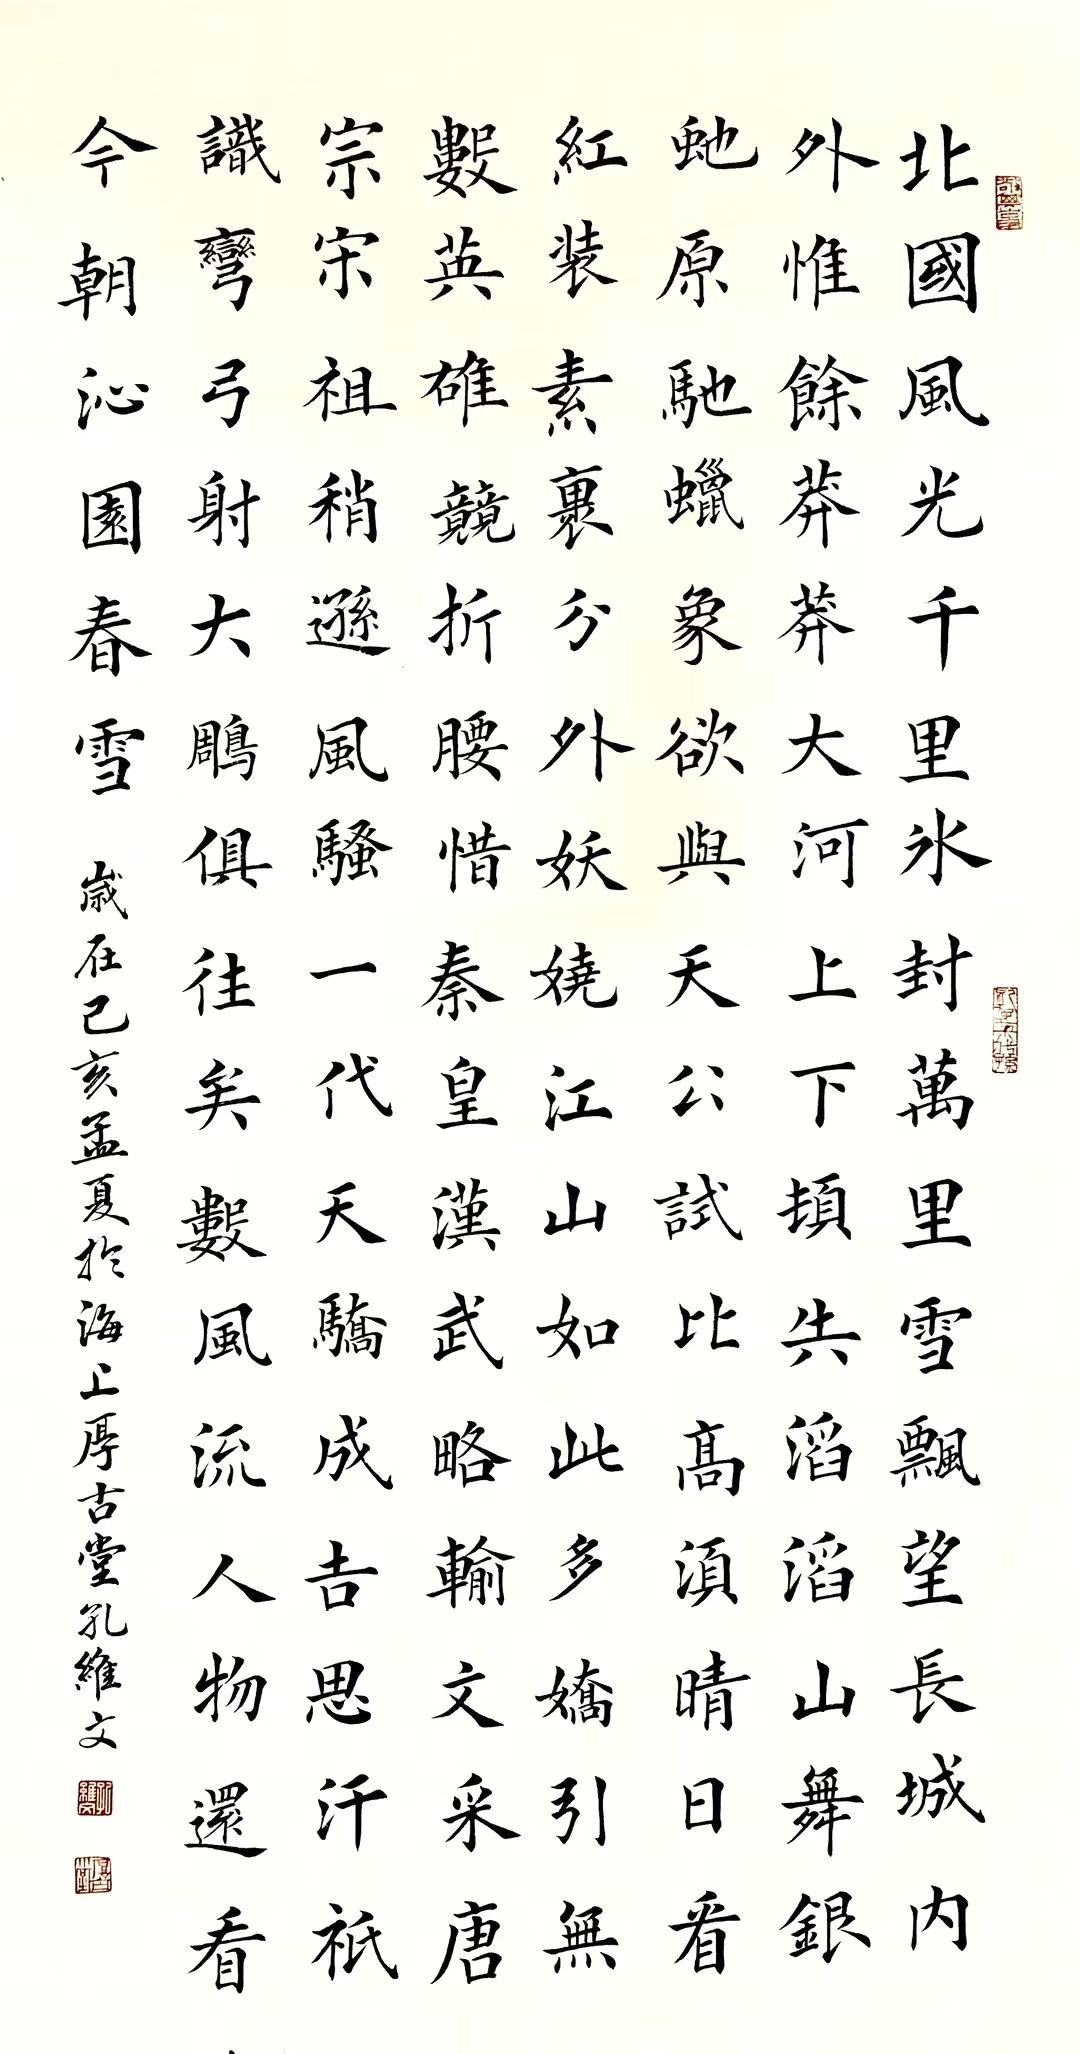 北國風光千里氷封萬里雪飄望長城内
外惟餘莽莽大河上下頓失滔滔山舞銀
虵原馳蠟象欲與天公試比高須晴日看
紅装素裹分外妖嬈江山如此多嬌引無
數英雄競折腰惜秦皇漢武略輸文采唐
宗宋祖稍遜風騷一代天驕成吉思汗祇
識彎弓射大鵰俱往矣數風流人物還看
今朝沁園春雪 歲在己亥孟夏於海上厚古堂孔維文
孔維文